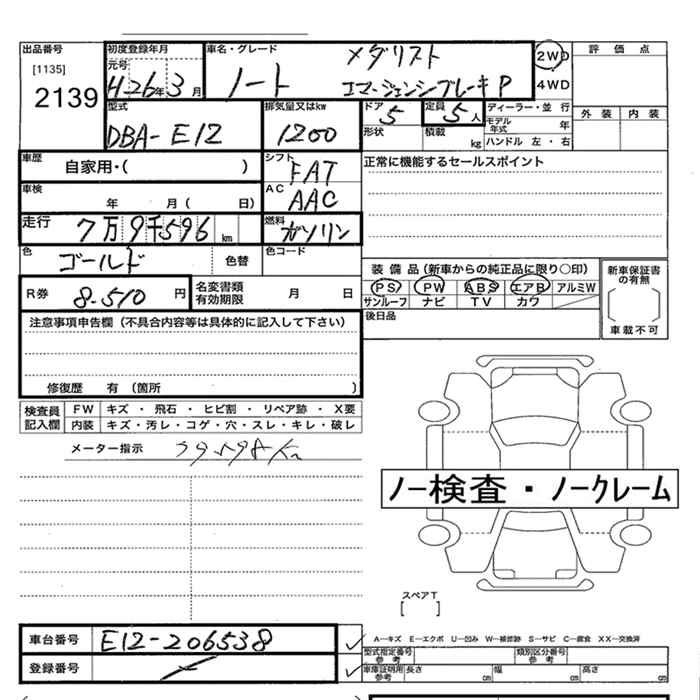 出品番号 初度登録年月 車名・グレード メダリスト 2WD 評価点
[1135] 元号 ノート エマージェンシーブレーキP 4WD
2139 H26年3月
型式 排気量又はkw ドア 5 定員 5人 ディーラー・並行 外装 内装
DBA-E12 1200 形状 積載 kg モデル年式 年
ハンドル 左・右
車歴 自家用・( ) シフト FAT 正常に機能するセールスポイント
車検 年 月( 日) AC AAC
走行 7万9千596km 燃料 ガソリン
色 ゴールド 色替 色コード
装備品(新車からの純正品に限り○印) 新車保証書の有無
R券 8.510円 名変書類有効期限 月 日 PS PW ABS エアB アルミW
サンルーフ ナビ TV カワ
注意事項申告欄(不具合内容等は具体的に記入して下さい) 後日品 車載不可
修復歴 有(箇所 )
検査員記入欄 FW キズ・飛石・ヒビ割・リペア跡・X要
内装 キズ・汚レ・コゲ・穴・スレ・キレ・破レ
メーター指示
ノー検査・ノークレーム
スペアT
[ ]
車台番号 E12-206538 A―キズ E―エクボ U―凹み W―補修跡 S―サビ C―腐食 XX―交換済
登録番号 型式指定番号 参考 類別区分番号 参考
車庫証明用 参考 長さ cm 幅 cm 高さ cm